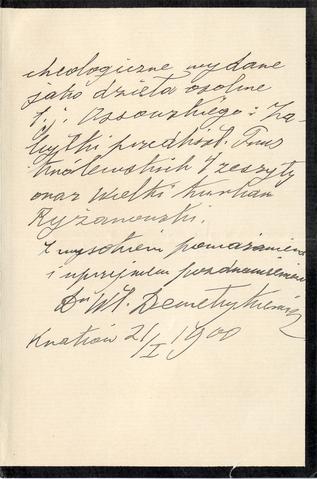 cheologiczne wydane
jako dzieła osobne
t. j. Ossowskiego: Za-
bytki przedhist. Prus
Królewskich 4 zeszyty
oraz Wielki Kurhan
Ryżanowski.
Z wysokiem poważaniem
i uprzejmem pozdrowieniem
Dr Wł. Demetrykiewicz
Kraków 21/I 1900